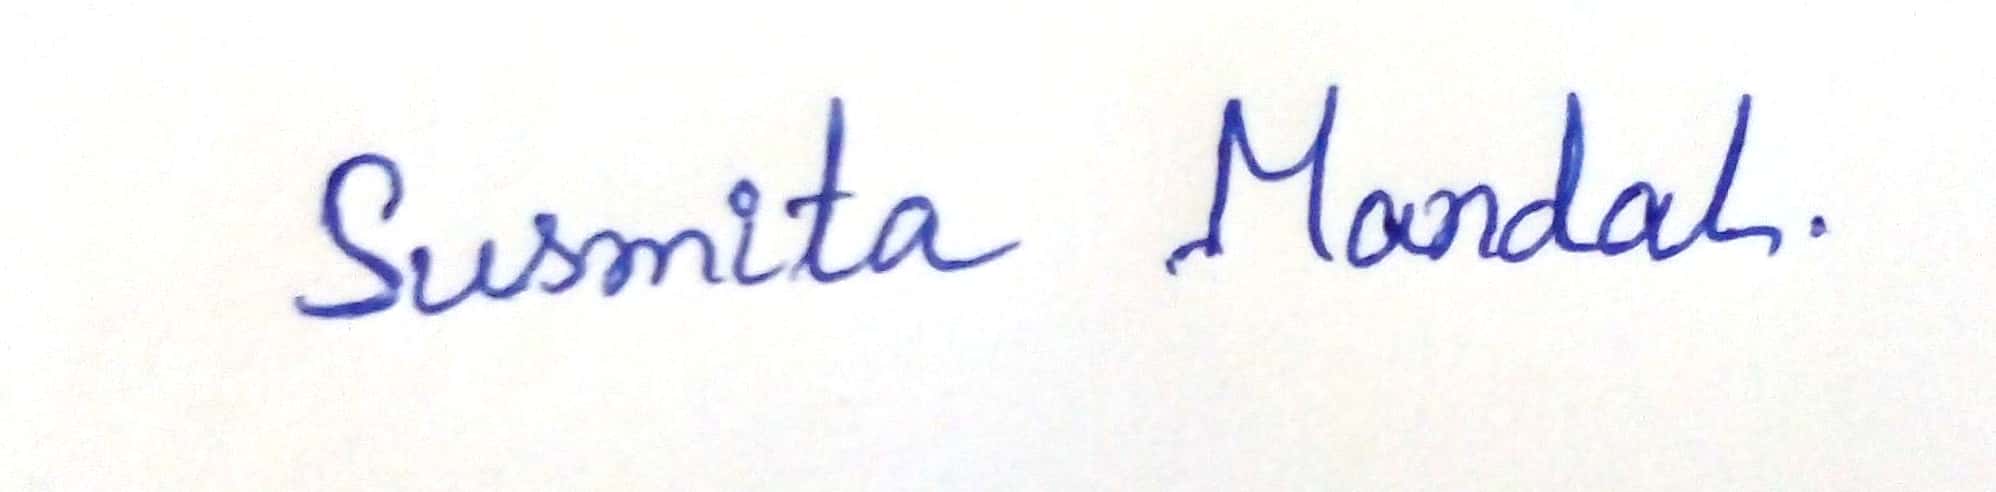 Susmita Mandal.